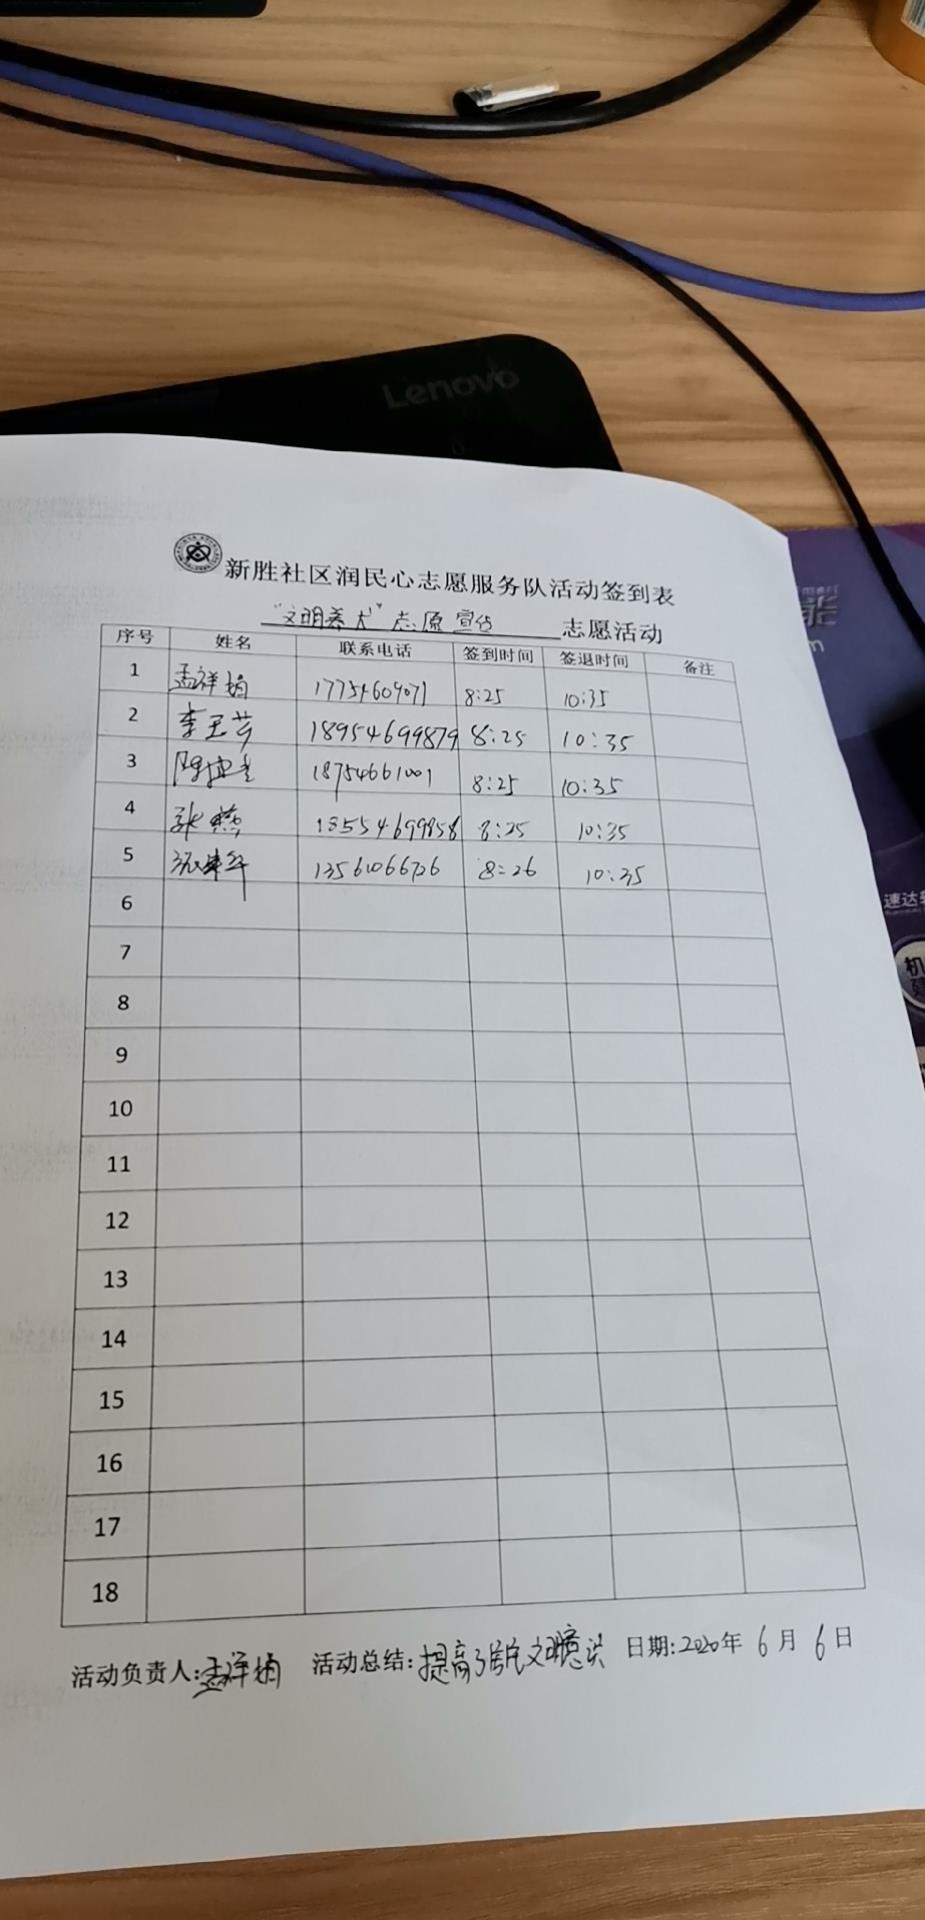 Lenovo
新胜社区润民心志愿服务队活动签到表
"文明养犬"志愿宣传 志愿活动
序号 姓名 联系电话 签到时间 签退时间 备注
1 孟祥娟 17754604071 8:25 10:35
2 李玉芬 18954699879 8:25 10:35
3 18754661001 8:25 10:35
4 张燕 13554699858 8:25 10:35
5 13561066726 8:26 10:35
6
7
8
9
10
11
12
13
14
15
16
17
18
活动负责人:孟祥娟 活动总结:提高了居民文明意识 日期:2020年6月6日
能
速达
机